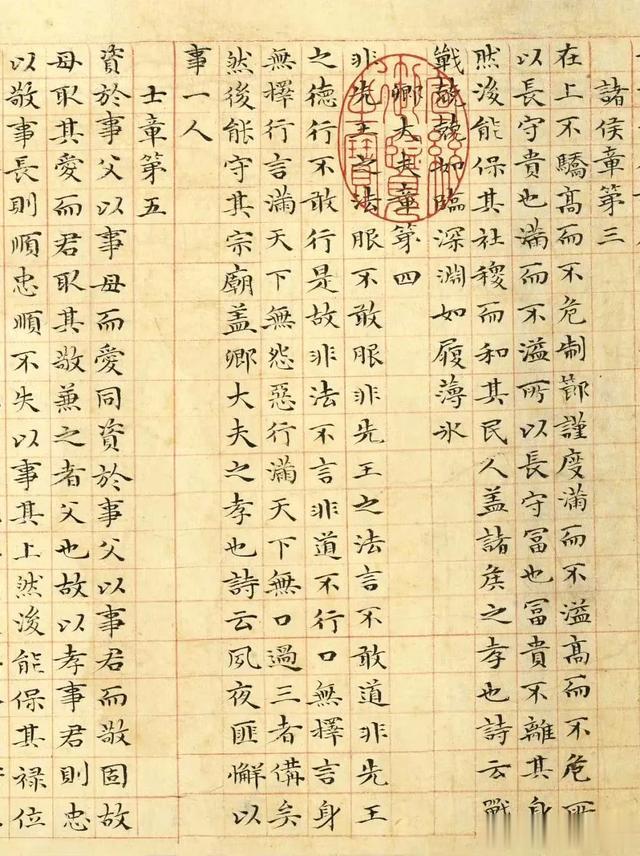 諸侯章第三
在上不驕高而不危制節謹度滿而不溢高而不危所
以長守貴也滿而不溢所以長守冨也冨貴不離其身
然後能保其社稷而和其民人盖諸侯之孝也詩云戰
戰兢兢如臨深淵如履薄氷
卿大夫章第四
非先王之法服不敢服非先王之法言不敢道非先王
之德行不敢行是故非法不言非道不行口無擇言身
無擇行言滿天下無怨惡行滿天下無口過三者備矣
然後能守其宗廟盖卿大夫之孝也詩云夙夜匪懈以
事一人
士章第五
資於事父以事母而愛同資於事父以事君而敬固故
母取其愛而君取其敬兼之者父也故以孝事君則忠
以敬事長則順忠順不失以事其上然後能保其禄位